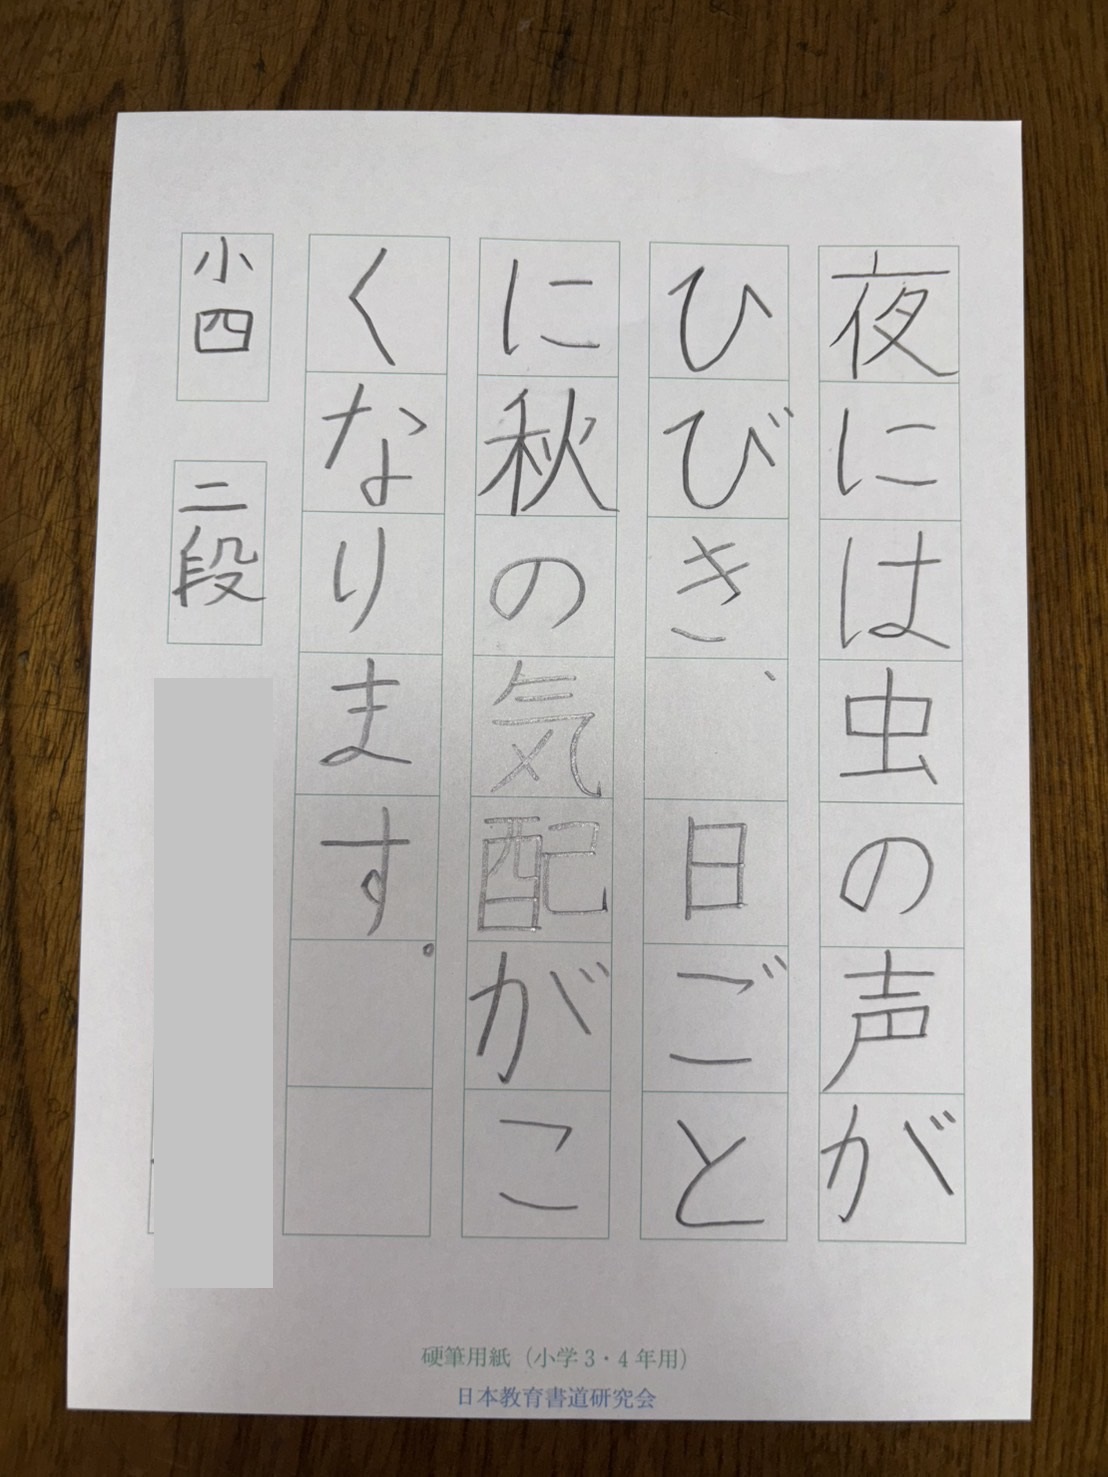 夜には虫の声が
ひびき、日ごと
に秋の気配がこ
くなります。
小四 二段
硬筆用紙（小学3・4年用）
日本教育書道研究会